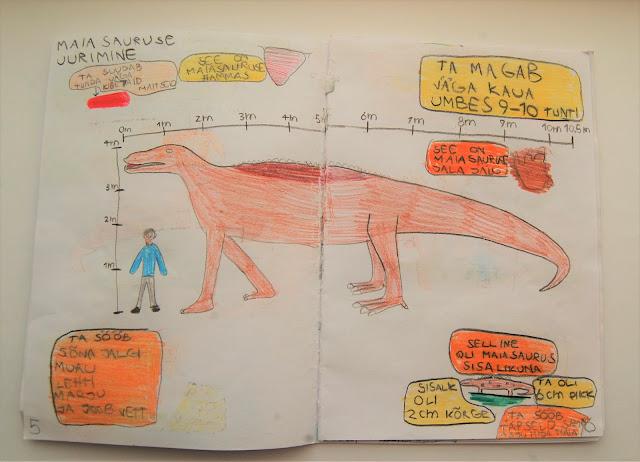 MAIASAURUSE
UURIMINE
TA SUUDAB
TUNDA VÄGA
MAITSEID
SEE ON
MAIASAURUSE
HAMMAS
TA MAGAB
VÄGA KAUA
UMBES 9-10 TUNTI
0m 1m 2m 3m 4m 5 6m 7m 8m 9m 10m 10,5m
4m
3m
2m
1m
SEE ON
MAIASAURUSE
JALA JÄLG
TA SÖÖB
SÕNAJALGI
MURU
LEHTI
MARJU
JA JOOB VETT
SELLINE
OLI MAIASAURUS
SISALIKUNA
SISALIK
OLI
2cm KÕRGE
TA OLI
6cm PIKK
TA SÖÖB
TÄPSELT
5
6